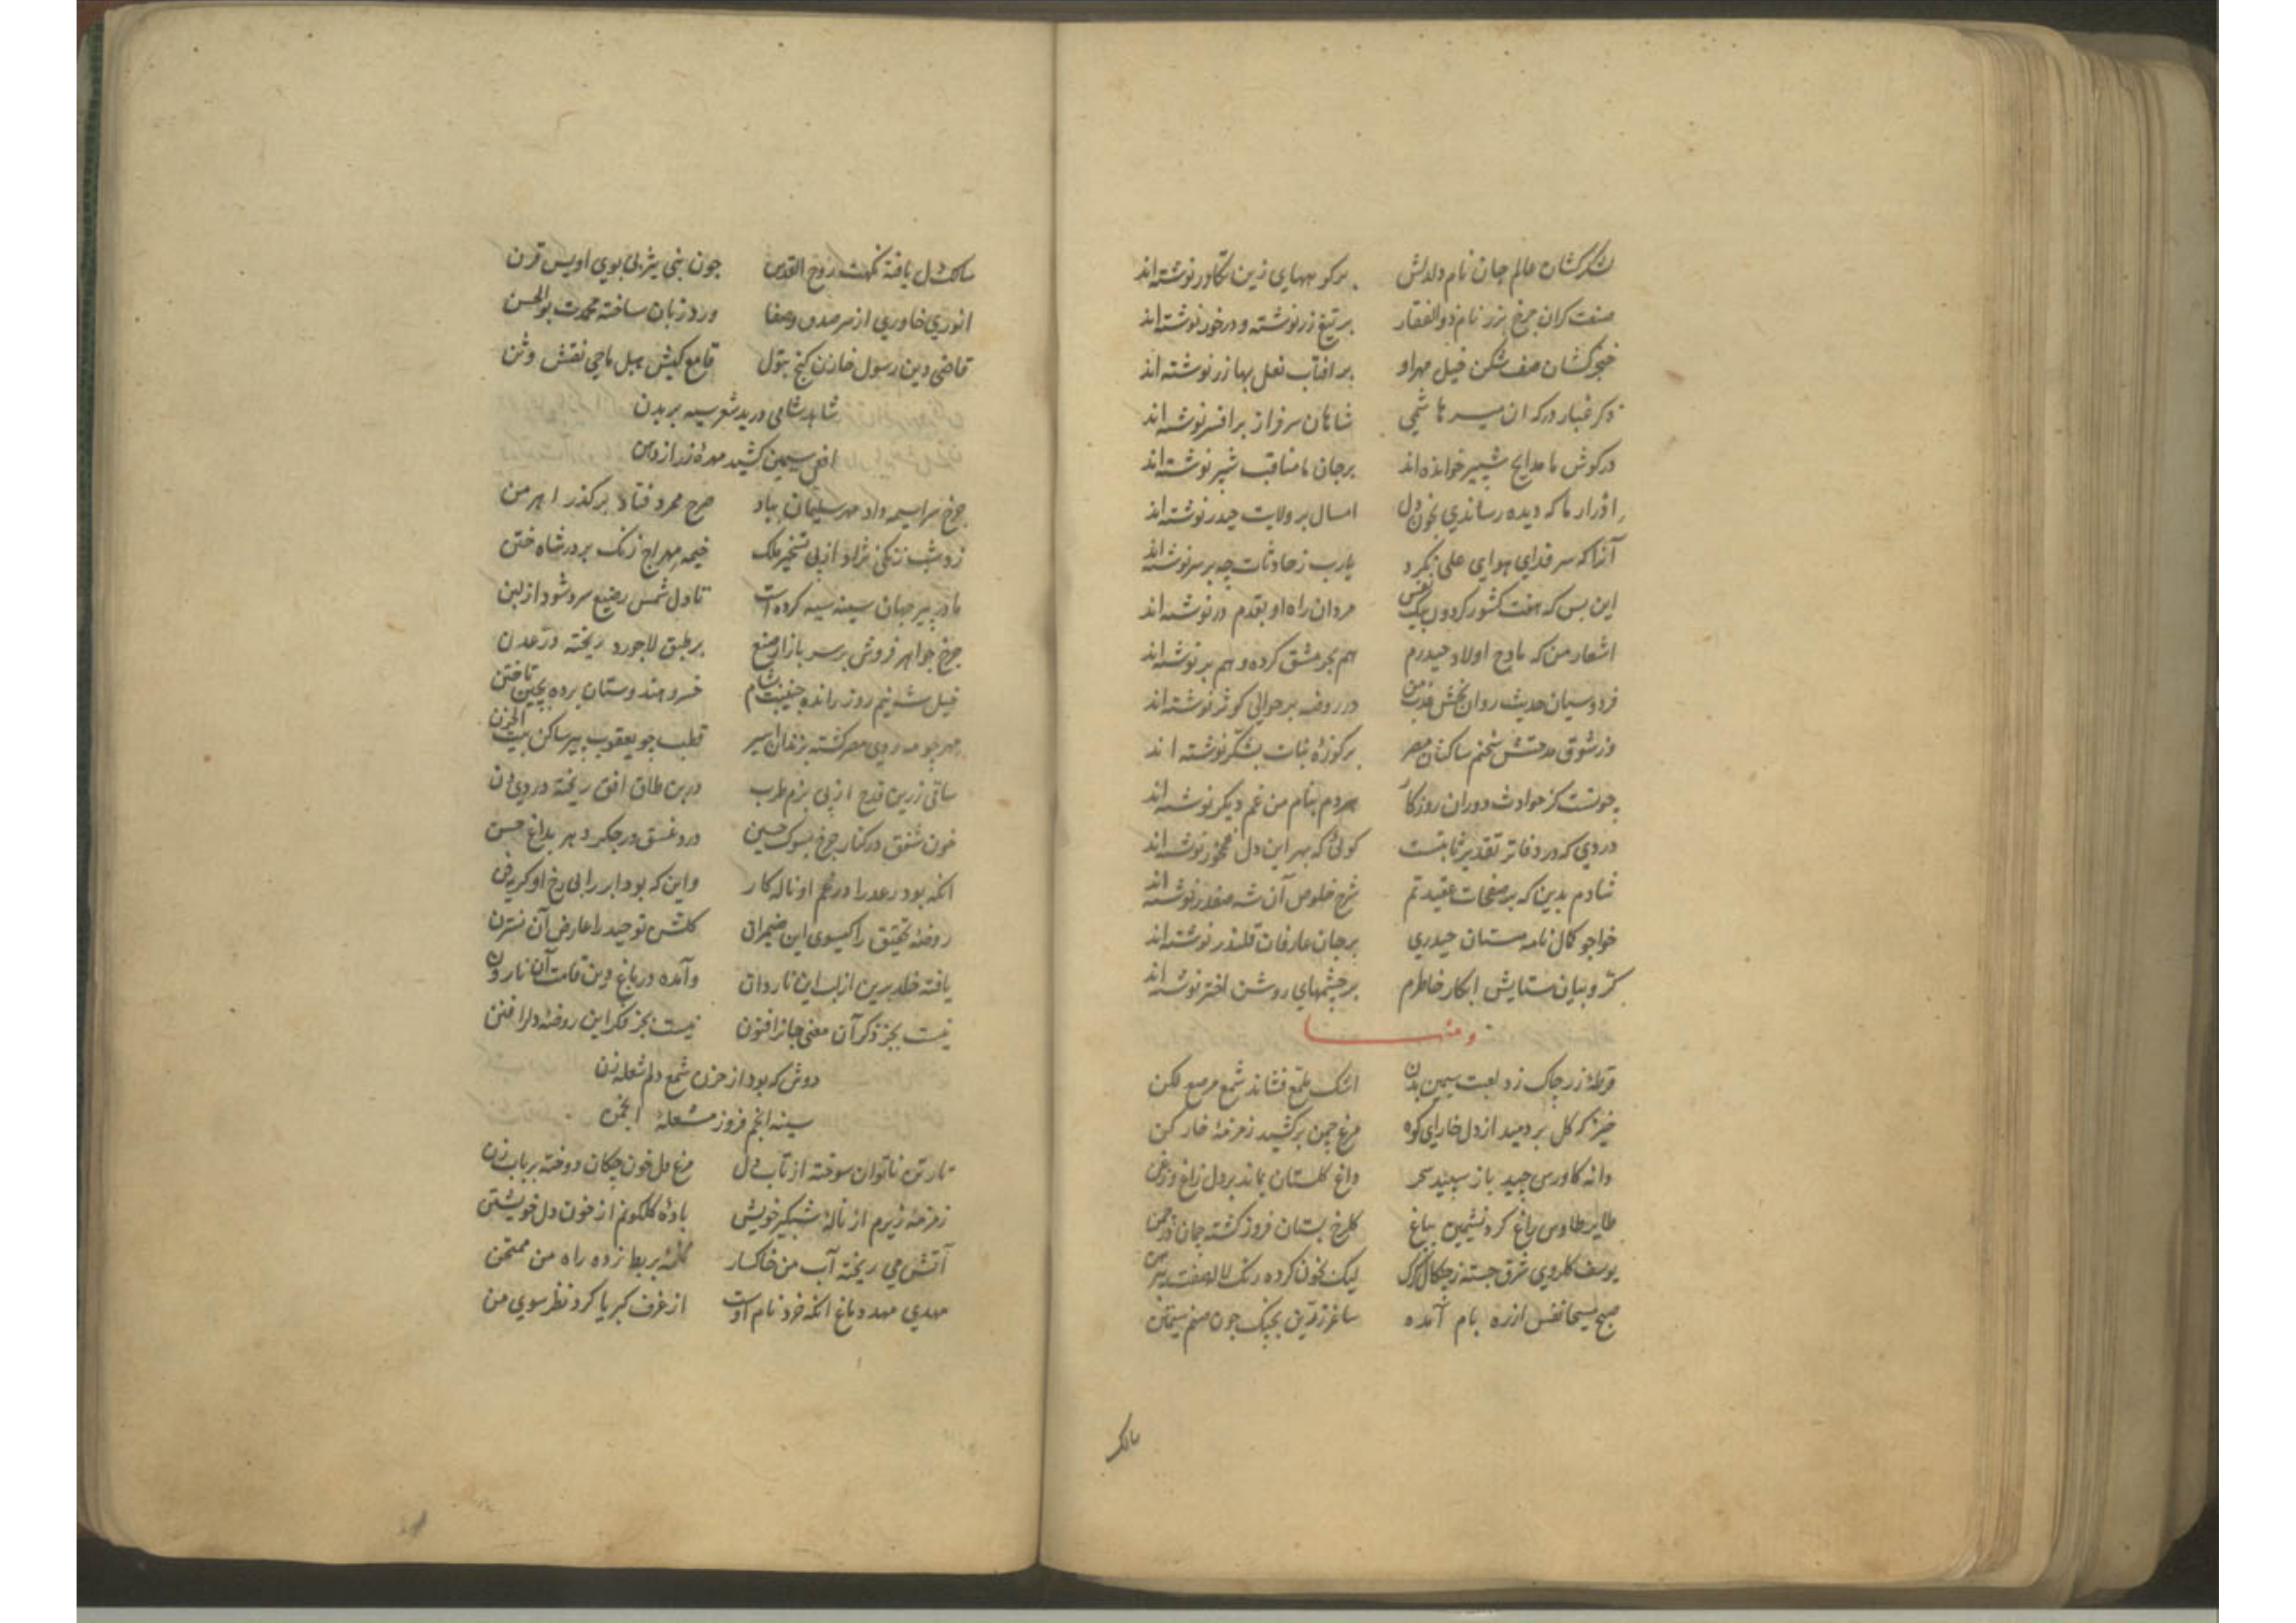 لشکرکشان عالم جان نام دلدلش بر کوههای زین تکاور نوشته‌اند
صنعت کران چرخ بزر نام ذوالفقار بر تیغ زر نوشته و در خور نوشته‌اند
خنجرکشان صف شکن خیل مهر او بر افتاب نعل بها زر نوشته‌اند
ذکر غبار درکه ان میر هاشمی شاهان سرفراز بر افسر نوشته‌اند
در کوش ما مدایح شبیر خوانده‌اند بر جان ما مناقب شبر نوشته‌اند
ادرار ما که دیده رساندی بخون دل امسال بر ولایت حیدر نوشته‌اند
آنرا که سر فدای هوای علی نکرد یارب ز حادثات چه بر سر نوشته‌اند
این بس که هفت کشور کردون بیک نفس مردان راه او بقدم در نوشته‌اند
اشعار من که مادح اولاد حیدرم هم بحر مشق کرده و هم بر نوشته‌اند
فردوسیان حدیث روان بخش عذب من در روضه بر حوالی کوثر نوشته‌اند
وز شوق مدحتش سخنم ساکنان مصر بر کوزه نبات بشکر نوشته اند
چونست کز حوادث دوران روزکار هردم بنام من غم دیکر نوشته‌اند
دردی که در دفاتر تقدیر ثابتست کوئی که بهر این دل غمخور نوشته‌اند
شادم بدین که بر صفحات عقیدتم شرح خلوص آن شه صفدر نوشته‌اند
خواجو کمال نامه مستان حیدری بر جان عارفان قلندر نوشته‌اند
کروبیان ستایش ابکار خاطرم بر چشمهای روشن اختر نوشته‌اند
و منه
قرطهٔ زر چاک زد لعبت سیمین بدن اشک ملمع فشاند شمع مرصع لکن
خیز که کل بر دمید از دل خارای کوه مرغ چمن برکشید زمزمهٔ خارکن
دانه کاورس چید باز سپید سحر داغ کلستان بماند بر دل زاغ و زغن
طایر طاوس باغ کرد نشیمن بباغ کلرخ بستان فروز کشته جان در چمن
یوسف کلروی شرق جسته ز چنکال کرک لیک بخون کرده رنک لاله صفت پیرهن
صبح مسیحا نفس از ره بام آمده ساغر زرین بچنک چون صنم سیمتن
سالک
سالک دل یافته نکهت روح القدس چون نبی یثربی بوی اویس قرن
انوری خاوری از سر صدق و صفا ورد زبان ساخته محمدت بوالحسن
قاضی دین رسول خازن کنج بتول قامع کیش هبل ماحی نقش وثن
شاهد شامی درید شعر سیه بر بدن
افعی سیمین کشید مهرهٔ زر از دهن
چرخ سراسیمه داد مهر سلیمان بباد صرح ممرد فتاد بر کذر اهرمن
زد شب زنکی نژاد از پی تسخیر ملک خیمه مهراج زنک بر در شاه ختن
مادر پیر جهان سینه سیه کرده است تا دل شمس رضیع سرد شود از لبن
چرخ جواهر فروش بر سر بازار صنع بر طبق لاجورد ریخته در عدن
خیل شه نیم روز رانده جنیبت بشام خسرو هندوستان برده بچین تاختن
مهر چو مه روی مصر کشته بزندان اسیر قطب چو یعقوب پیر ساکن بیت الحزن
ساقی زرین قدح از پی بزم طرب در بن طاق افق ریخته دردی دن
خون شفق در کنار چرخ بسوک حسین درد غسق در جکر دهر بداغ حسن
انکه بود رعد را در غم او ناله کار واین که بود ابر را بی رخ او کریه فن
روضهٔ تحقیق را کیسوی این ضیمران کلشن توحید را عارض آن نسترن
یافته خلد برین از لب این ناردان وآمده در باغ دین قامت آن نارون
نیست بجز ذکر آن معنی جانرا فنون نیست بجز فکر این روضهٔ دلرا فنن
دوش که بود از حزن شمع دلم شعله زن
سینه انجم فروز مشعلهٔ انجمن
تار تن ناتوان سوخته از تاب دل مرغ دل خون چکان دوخته بر باب زن
زمزمهٔ زیرم از نالهٔ شبکیر خویش بادهٔ کلکونم از خون دل خویشتن
آتش می ریخته آب من خاکسار نغمهٔ بربط زده راه من ممتحن
مهدی مهد دماغ انکه خرد نام اوست از غرف کبریا کرد نظر سوی من